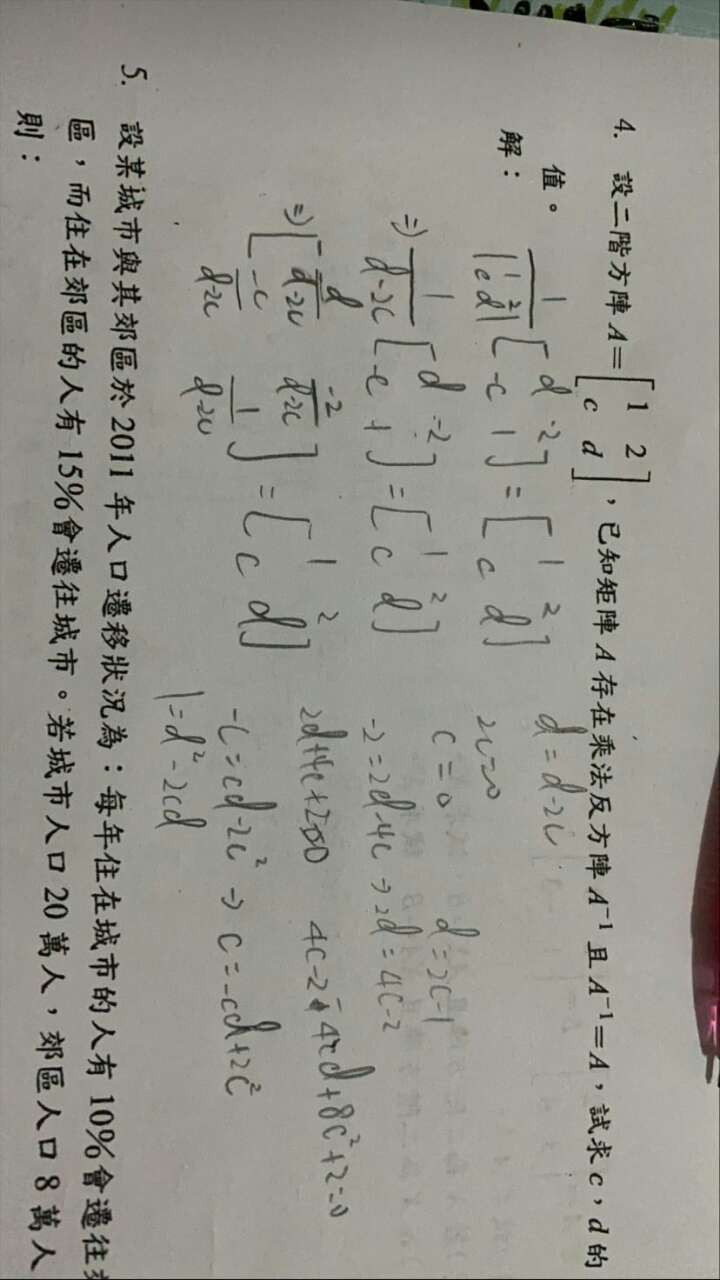 4. 設二階方陣 A=[1 2; c d],已知矩陣 A 存在乘法反方陣 A⁻¹ 且 A⁻¹=A,試求 c,d 的
值。
解:
1/|1 2; c d| [d -2; -c 1] = [1 2; c d]
d=d-2c
2c=0
⇒ 1/(d-2c) [d -2; -c 1] = [1 2; c d]
c=0
d=2c-1
-2=2d-4c → 2d=4c-2
⇒ [d/(d-2c) -2/(d-2c); -c/(d-2c) 1/(d-2c)] = [1 2; c d]
4c-2-4cd+8c²+2=0
-c=cd-2c² → c=-cd+2c²
1=d²-2cd
5. 設某城市與其郊區於 2011 年人口遷移狀況為:每年住在城市的人有 10%會遷往
區,而住在郊區的人有 15%會遷往城市。若城市人口 20 萬人,郊區人口 8 萬人
則: